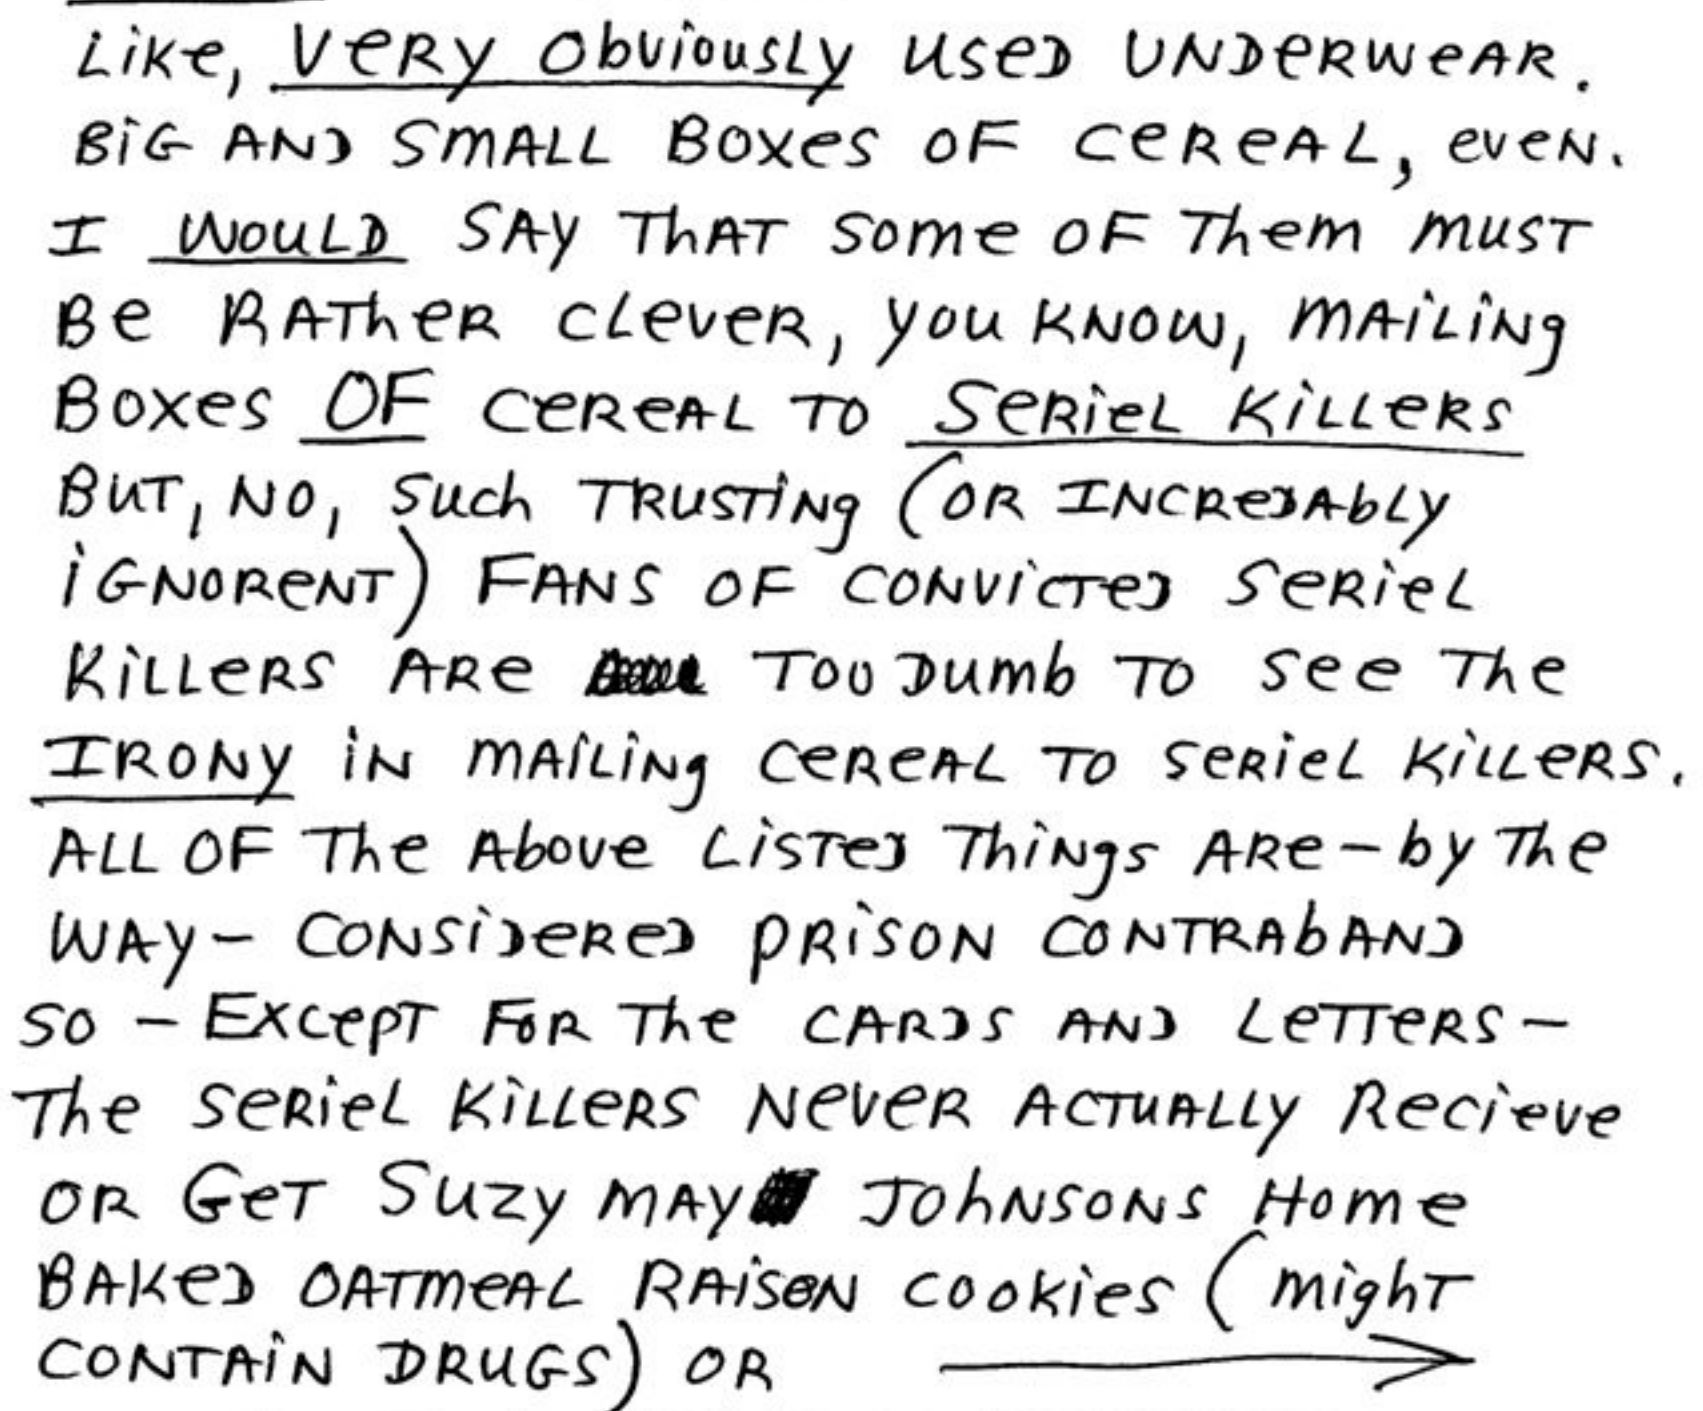 Like, Very Obviously Used Underwear.
Big and small boxes of cereal, even.
I would say that some of them must
be rather clever, you know, mailing
boxes of cereal to seriel killers
but, no, such trusting (or incredably
ignorent) fans of convicted seriel
killers are too dumb to see the
irony in mailing cereal to seriel killers.
All of the above listed things are - by the
way - considered prison contraband
so - except for the cards and letters -
the seriel killers never actually recieve
or get Suzy May Johnsons home
baked oatmeal raison cookies (might
contain drugs) or →